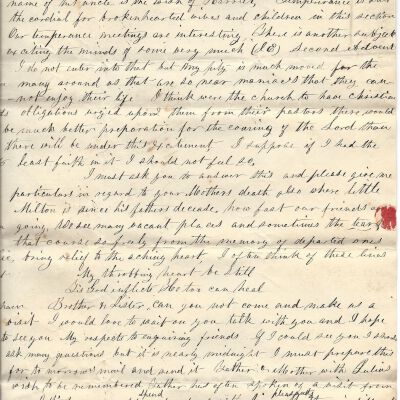 name of my uncle is the wish of Harriet, Temperance is now
the cordial for brokenhearted wives and children in this section
Our temperance meetings are interesting, There is another subject
exciting the minds of some very much (I.E) Second Advent
I do not enter into that but my pity is much moved for the
many around us that are so near maniacs that they can
not enjoy their life I think were the church to have christian
obligations urged upon them from their pastors there would
be much better preparation for the coming of the Lord than
there will be under this excitement I suppose if I had the
least faith in it I should not feel so,
I must ask you to answer this and please give me
particulars in regard to your Mothers death also where little
Milton is since his fathers decease, how fast our friends are
going, We see many vacant places and sometimes the tear
that courses so freely from the memory of departed ones
bring relief to the aching heart, I often think of these lines
My throbbing heart be still
Tis God inflicts He too can heal
Brother & Sister, can you not come and make us a
visit I would love to wait on you talk with you and I hope
to see you My respects to enquiring friends If I could see you I should
ask many questions but it is nearly midnight I must prepare this
for to morrows mail and send it Father & Mother with Julius
wish to be remembered Father has often spoken of a visit from
spend pleasantly